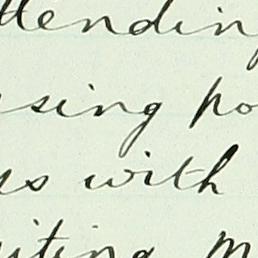 ttending
sing po
s with
iting M